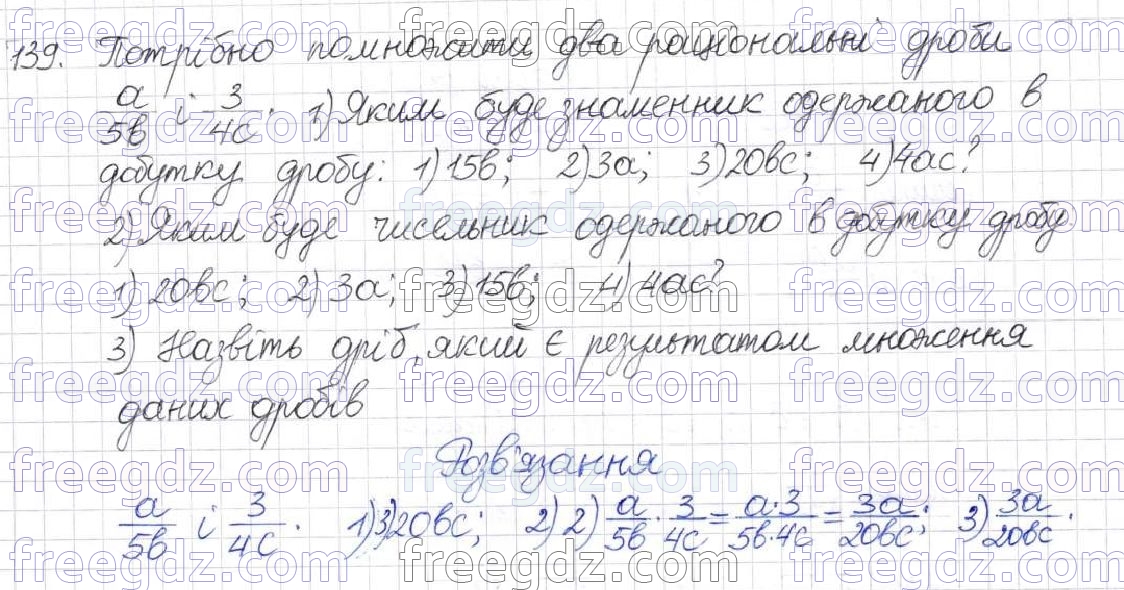 139. Потрібно помножити два раціональні дроби
a/5b і 3/4c. 1) Яким буде знаменник одержаного в
добутку дробу: 1) 15b; 2) 3a; 3) 20bc; 4) 4ac?
2) Яким буде чисельник одержаного в добутку дробу
1) 20bc; 2) 3a; 3) 15b; 4) 4ac?
3) Назвіть дріб, який є результатом множення
даних дробів
Розв'язання
a/5b і 3/4c. 1) 3) 20bc; 2) 2) a/5b · 3/4c = a·3/5b·4c = 3a/20bc; 3) 3a/20bc.
freegdz.com